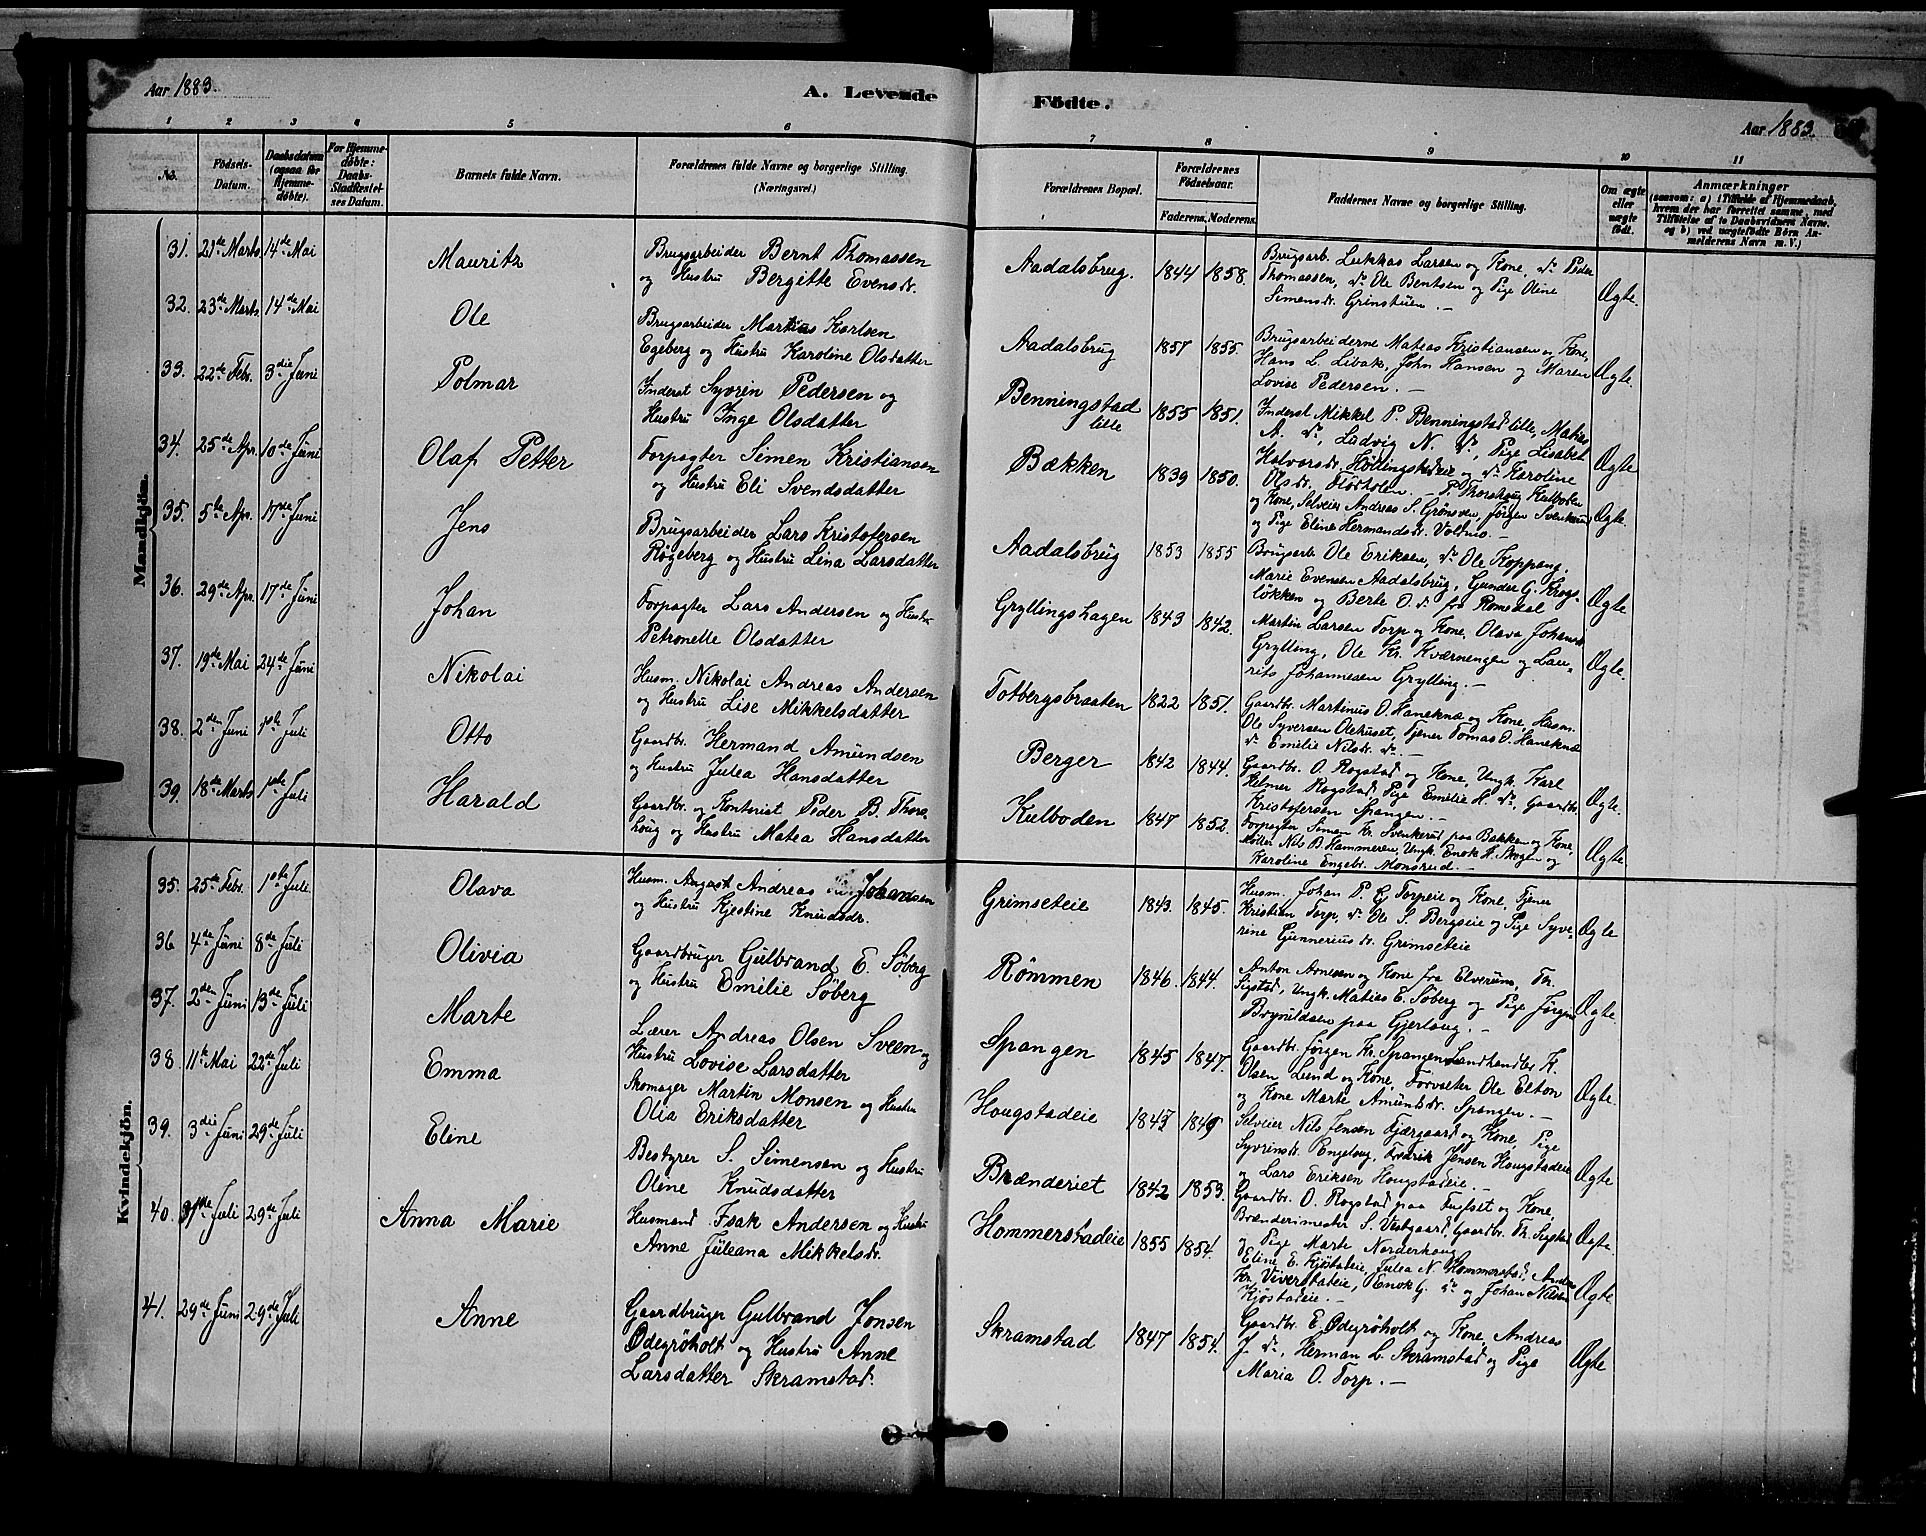 Aar 1883.
A. Levende
Födte.
Aar 1883.
1 2 3 4 5 6 7 8 9 10 11
No.
Födsels-
Datum.
Daabsdatum
(ogsaa for
Hjemme-
döbte).
For Hjemme-
döbte:
Daabs-
Stadfæstel-
ses Datum.
Barnets fulde Navn.
Forældrenes fulde Navne og borgerlige Stilling.
(Næringsvei.)
Forældrenes Bopæl.
Forældrenes
Födselsaar.
Faderens. Moderens.
Faddernes Navne og borgerlige Stilling.
Om ægte
eller
uægte
födt.
Anmærkninger
(saasom: a) i Tilfælde af Hjemmedaab,
hvem der har forrettet samme, med
Tilföielse af to Daabsvidners Navne,
og b) ved uægtefödte Börn An-
melderens Navn m. V.)
Mandkjön.
31. 21de Marts 14de Mai
Mauritz
Brugsarbeider Bernt Thomassen
og Hustru Bergitte Evensdr.
Aadalsbrug. 1844 1858.
Brugsarb. Lukkas Larsen og Kone, do Peder
Thomassen, do Ole Bentsen og Pige Oline
Simensdr. Grinstuen. —
Ægte.
32. 23de Marts 14de Mai
Ole
Brugsarbeider Martius Karlsen
Egeberg og Hustru Karoline Olsdatter
Aadalsbrug 1857 1855.
Brugsarbeiderne Matias Kristiansen og Kone,
Hans L. Libak, John Hansen og Maren
Lovise Pedersen. —
Ægte.
33. 22de Febr. 3die Juni
Polmar
Inderst Syvrin Pedersen og
Hustru Inge Olsdatter
Benningstad
lille
1855 1851.
Inderst Mikkel P. Benningstad lille, Matias
A. do, Ludvig N. do, Pige Lisabet
Halvorsdr. og do Karoline
Olsdr.
Ægte
34. 25de Apr. 10de Juni
Olaf Petter
Forpagter Simen Kristiansen
og Hustru Eli Svendsdatter
Bækken 1839 1850.
P. Thorshaug Kulboden
og Kone, Selveier Andreas S. Grönsven, Jörgen Svenkerud
og Pige Eline Hermandsdr. Voldmo. —
Ægte.
35. 5te Apr. 17de Juni
Jens
Brugsarbeider Lars Kristofersen
Rögeberg og Hustru Lina Larsdatter
Aadalsbrug 1853 1855
Brugsarb. Ole Eriksen, do Ole Koppang,
Marie Evensen Aadalsbrug, Gunder G. Krogs-
løkken og Berte O. do fra Romedal
Ægte
36. 29de Apr. 17de Juni
Johan
Forpagter Lars Andersen og Hustru
Petronelle Olsdatter
Gryllingshagen 1843 1842.
Martin Larsen Torp og Kone, Olava Johansdr.
Grylling, Ole Kr. Kværnengen og Lau-
rits Johannesen Grylling. —
Ægte.
37. 19de Mai 24de Juni
Nikolai
Husm. Nikolai Andreas Andersen
og Hustru Lise Mikkelsdatter
Totbergsbraaten 1822 1851.
Gaardbr. Martinus O. Haneknæ og Kone, Husm.
Ole Syversen Olehuset, Tjener Tomas O. Haneknæ
do Emilie Nilsdr. do —
38. 2den Juni 1ste Juli
Otto
Gaardbr. Hermand Amundsen
og Hustru Julea Hansdatter
Berger 1842 1844.
Gaardbr. O. Rogstad og Kone, Ungk. Karl
Helmer Rogstad, Pige Emilie H. do, Gaardbr.
Kristofersen Spangen. —
Ægte.
39. 18de Marts 1ste Juli
Harald
Gaardbr. og Kontorist Peder B. Thors-
houg og Hustru Matea Hansdatter
Kulboden 1847 1852.
Forpagter Simen Kr. Svenkerud paa Bækken og Kone,
Möller Nils B. Hammeren, Ungk. Enok H. Skogen og
Karoline Engebr. Monsrud. —
Ægte.
Kvindekjön.
35. 25de Febr. 1ste Juli
Olava
Husm. August Andreas Johansen
og Hustru Kjestine Knudsdr.
Grimseteie 1843. 1845.
Husm. Johan P. G. Torpeie og Kone, Tjener
Kristian Torp, do Ole S. Bergseie og Pige Syve-
rine Gunneriusdr. Grimseteie
Ægte
36 4de Juni 8de Juli
Olivia
Gaardbruger Gulbrand E. Söberg
og Hustru Emilie Söberg
Römmen 1846. 1844.
Anton Arnesen og Kone fra Elverum, Th.
Sigstad, Ungk. Matias E. Söberg og Pige Jörgine
Brynildsen paa Gjerloug. —
Ægte.
37. 2den Juni 13de Juli
Marte
Lærer Andreas Olsen Sveen og
Hustru Lovise Larsdatter
Spangen 1845 1847.
Gaardbr. Jörgen Kr. Spangen, Landhandler K.
Olsen Lund og Kone, Forvalter Ole Elton
og Kone Marte Amundsdr. Spangen. —
Ægte.
38. 11te Mai 22de Juli
Emma
Skomager Martin Monsen og Hustru
Olia Eriksdatter
Hougstadeie 1843 1849
Selveier Nils Jensen Kjærgaard og Kone, Pige
Syvrinsdr. Pengeloug, Fredrik Jensen Hougstadeie
og Lars Eriksen Hougstadeie. —
Ægte
39. 3die Juni 29de Juli
Eline
Bestyrer S. Simensen og Hustru
Oline Knudsdatter
Brænderiet 1842 1853.
Gaardbr. O. Rogstad paa Fuglset og Kone,
Brænderimester S. Vestgaard, Gaardbr. Th. Sigstad
og Pige Marte Norderhoug
Ægte.
40. 31te Juli 29de Juli
Anna Marie
Husmand Isak Andersen og Hustru
Anne Juleana Mikkelsdr.
Hommerstadeie 1855 1854.
Eline E. Kjöstadeie, Julea N. Hommerstad, Anders
Kr. Viverstadeie, Enok G. do og Johan Nilsen
Kjöstadeie. —
Ægte
41. 29de Juni 29de Juli
Anne
Gaardbruger Gulbrand Jonsen
Ødegröholt og Hustru Anne
Larsdatter Skramstad.
Skramstad 1847 1854.
Gaardbr. E. Ødegröholt og Kone, Andreas
J. do, Herman L. Skramstad og Pige
Maria O. Torp. —
Ægte